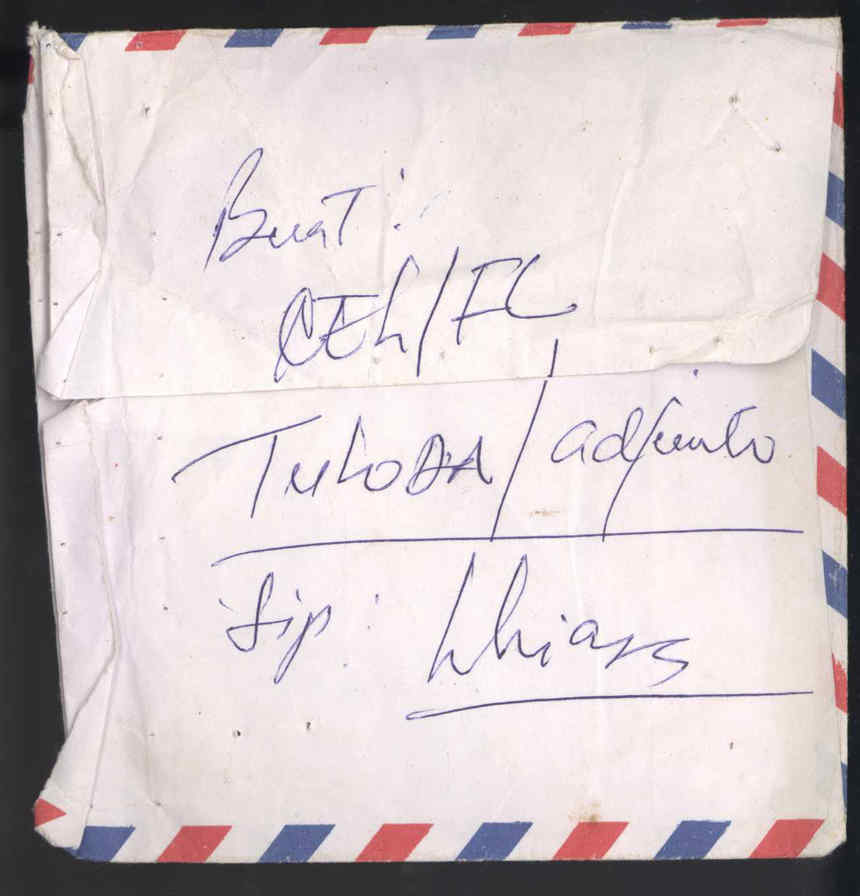 Buat :
CEL/FC
TuLoDA/adjunto
Sip : Lhiars